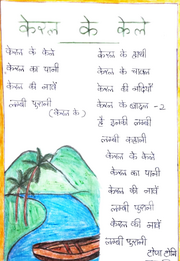 केरल के केले
केरल के केले
केरल का पानी
केरल की नावें
लम्बी पुरानी
(केरल के)
केरल के हाथी
केरल के चावल
केरल की नदियाँ
केरल के - 2
है इनकी लम्बी
लम्बी कहानी
केरल के केले
केरल का पानी
केरल की नावें
लम्बी पुरानी
केरल की नावें
लम्बी पुरानी